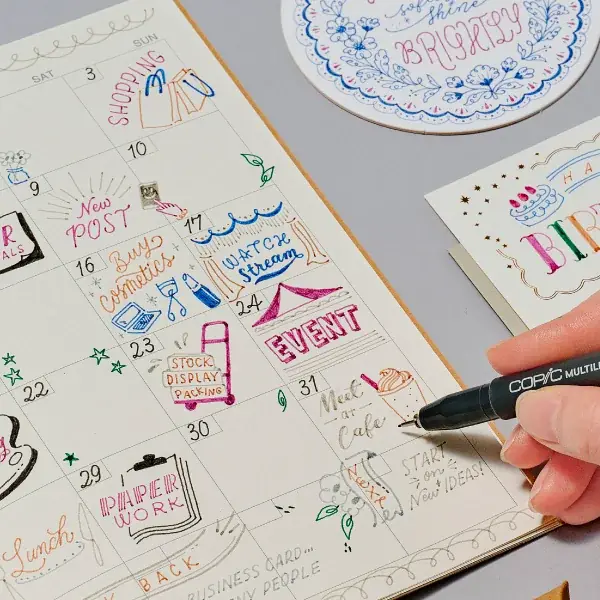 SAT
SUN
3
SHOPPING
9
10
New
POST
16
Buy
cosmetics
17
WATCH
Stream
22
23
STOCK
DISPLAY
PACKING
24
EVENT
29
PAPER
WORK
30
31
Meet
at
Cafe
NEXT
START
on
New IDEAS!
Lunch
BACK
BUSINESS CARD...
PEOPLE
shine
BRIGHTLY
COPIC MULTILI